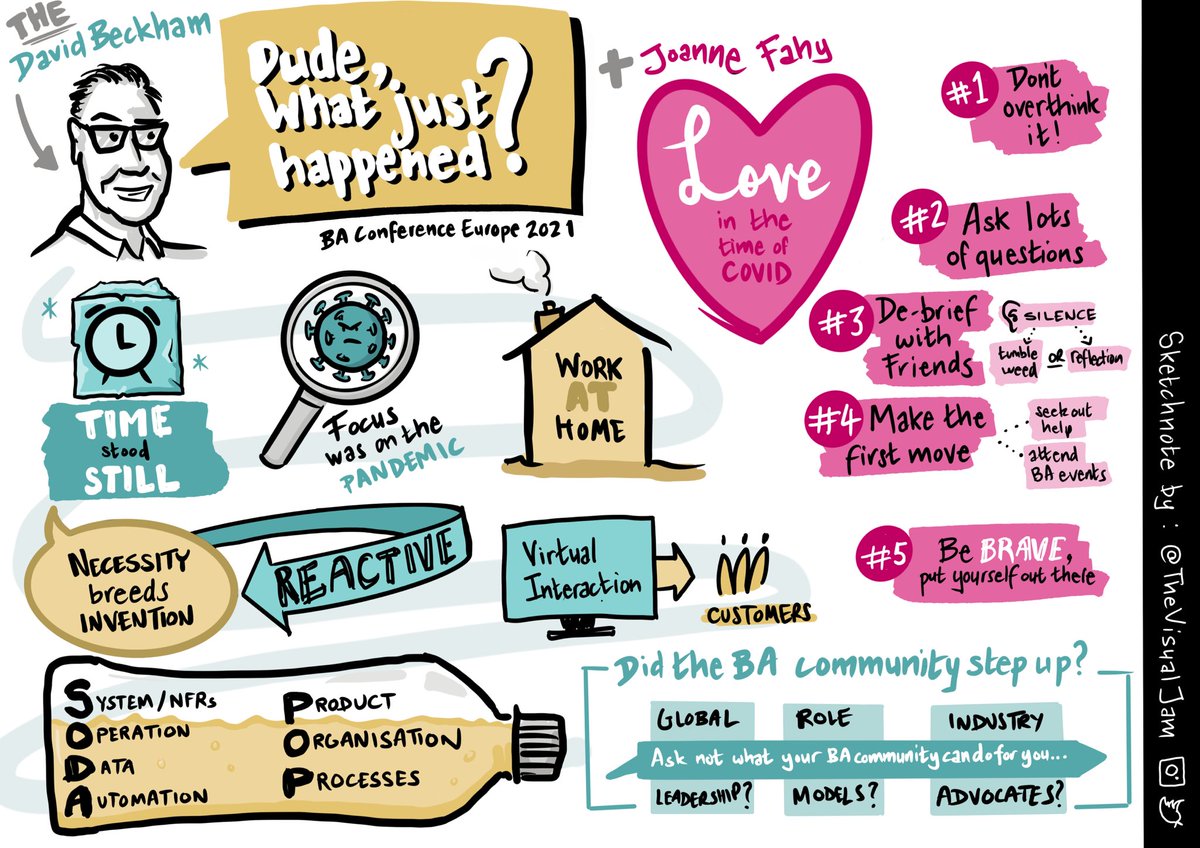 THE
David Beckham
Dude,
What just
happened?
BA Conference Europe 2021
+ Joanne Fahy
Love
in the
time of
COVID
#1 Don't
overthink
it!
#2 Ask lots
of questions
#3 De-brief
with
Friends
SILENCE
tumble
weed
OR
reflection
#4 Make the
first move
seek out
help
attend
BA events
#5 Be BRAVE,
put yourself out there
TIME
stood
STILL
Focus
was on the
PANDEMIC
WORK
AT
HOME
NECESSITY
breeds
INVENTION
REACTIVE
Virtual
Interaction
CUSTOMERS
SYSTEM/NFRs
OPERATION
DATA
AUTOMATION
PRODUCT
ORGANISATION
PROCESSES
Did the BA community step up?
GLOBAL
ROLE
INDUSTRY
Ask not what your BA community can do for you...
LEADERSHIP?
MODELS?
ADVOCATES?
Sketchnote by: @TheVisualJam